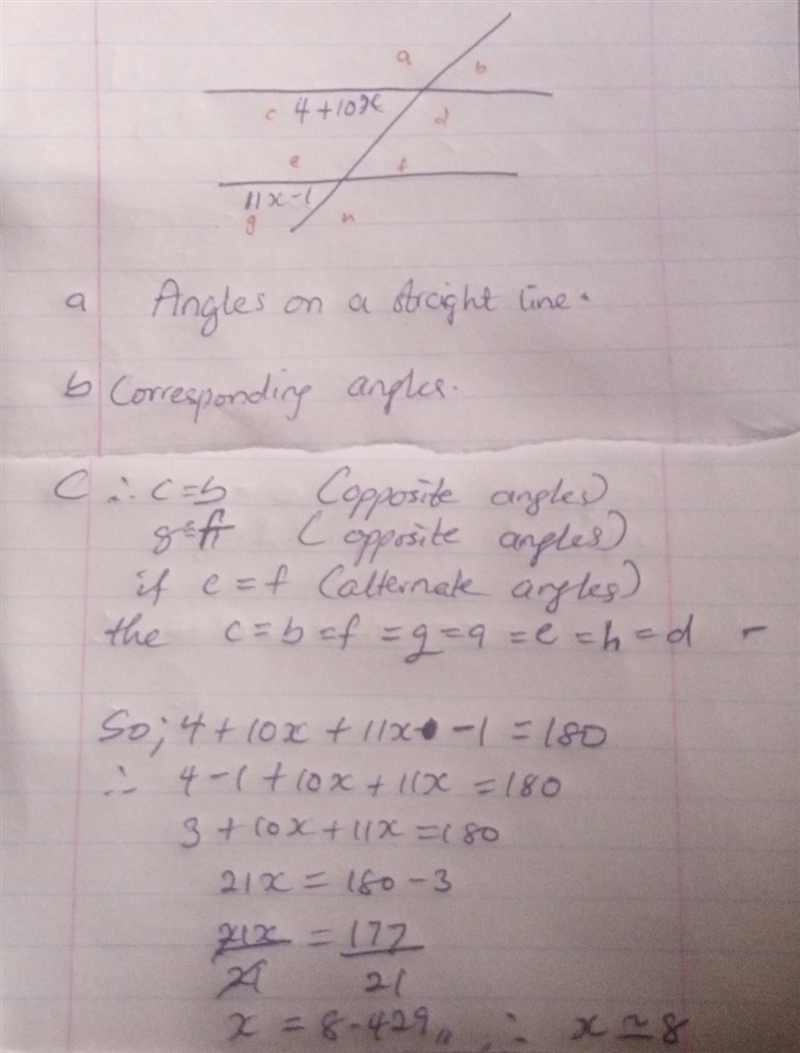 a
b
c 4+10x d
e f
11x-1
g n
a Angles on a straight line.
b Corresponding angles.
C ∴ c=b (opposite angles)
(opposite angles)
if c=f (alternate angles)
the c=b=f=g=a=e=h=d -
So; 4+10x+11x -1=180
∴ 4-1+10x+11x=180
3+10x+11x=180
21x=180-3
21x = 177
21 21
x = 8.429,, ∴ x≃8